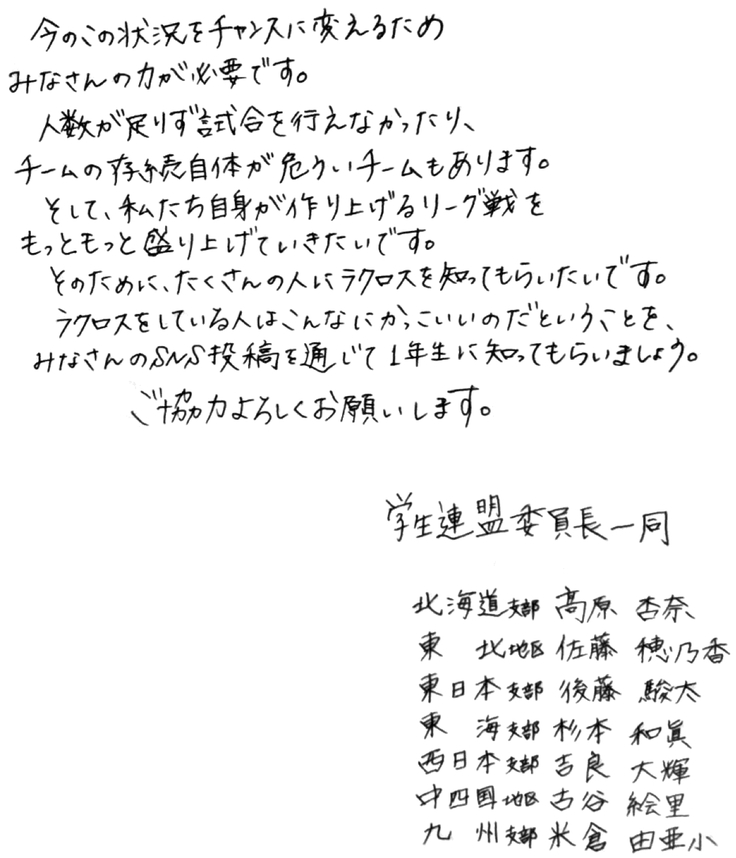 今のこの状況をチャンスに変えるため
みなさんの力が必要です。
人数が足りず試合を行えなかったり、
チームの存続自体が危ういチームもあります。
そして、私たち自身が作り上げるリーグ戦を
もっともっと盛り上げていきたいです。
そのために、たくさんの人にラクロスを知ってもらいたいです。
ラクロスをしている人はこんなにかっこいいのだということを、
みなさんのSNS投稿を通じて1年生に知ってもらいましょう。
ご協力よろしくお願いします。
学生連盟委員長一同
北海道支部 髙原 杏奈
東 北地区 佐藤 穂乃香
東日本支部 後藤 駿太
東 海支部 杉本 和眞
西日本支部 吉良 大輝
中四国地区 古谷 絵里
九 州支部 米倉 由亜小